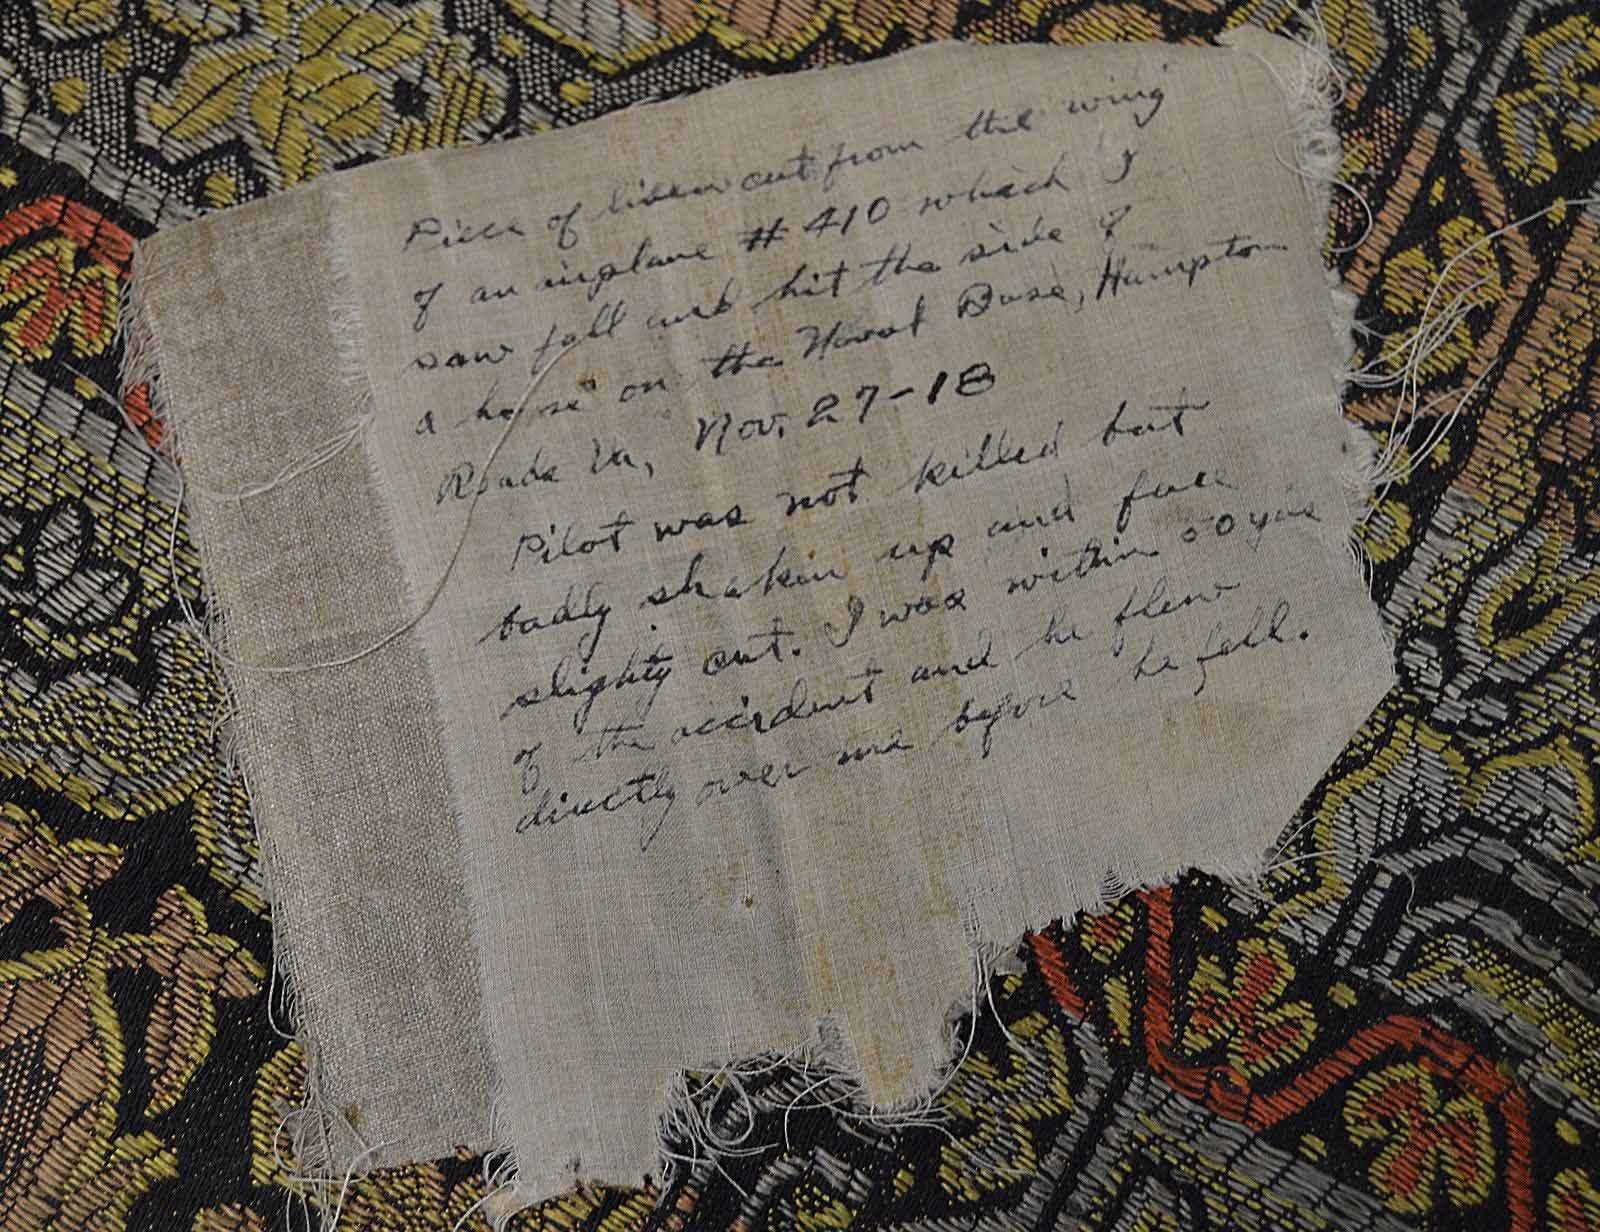 Piece of linen cut from the wing
of an airplane # 410 which I
saw fall and hit the side of
a house on the Naval Base, Hampton
Roads Va, Nov. 27-18
Pilot was not killed but
badly shaken up and face
slighty cut. I was within 50 yds
of the accident and he flew
directly over me before he fell.